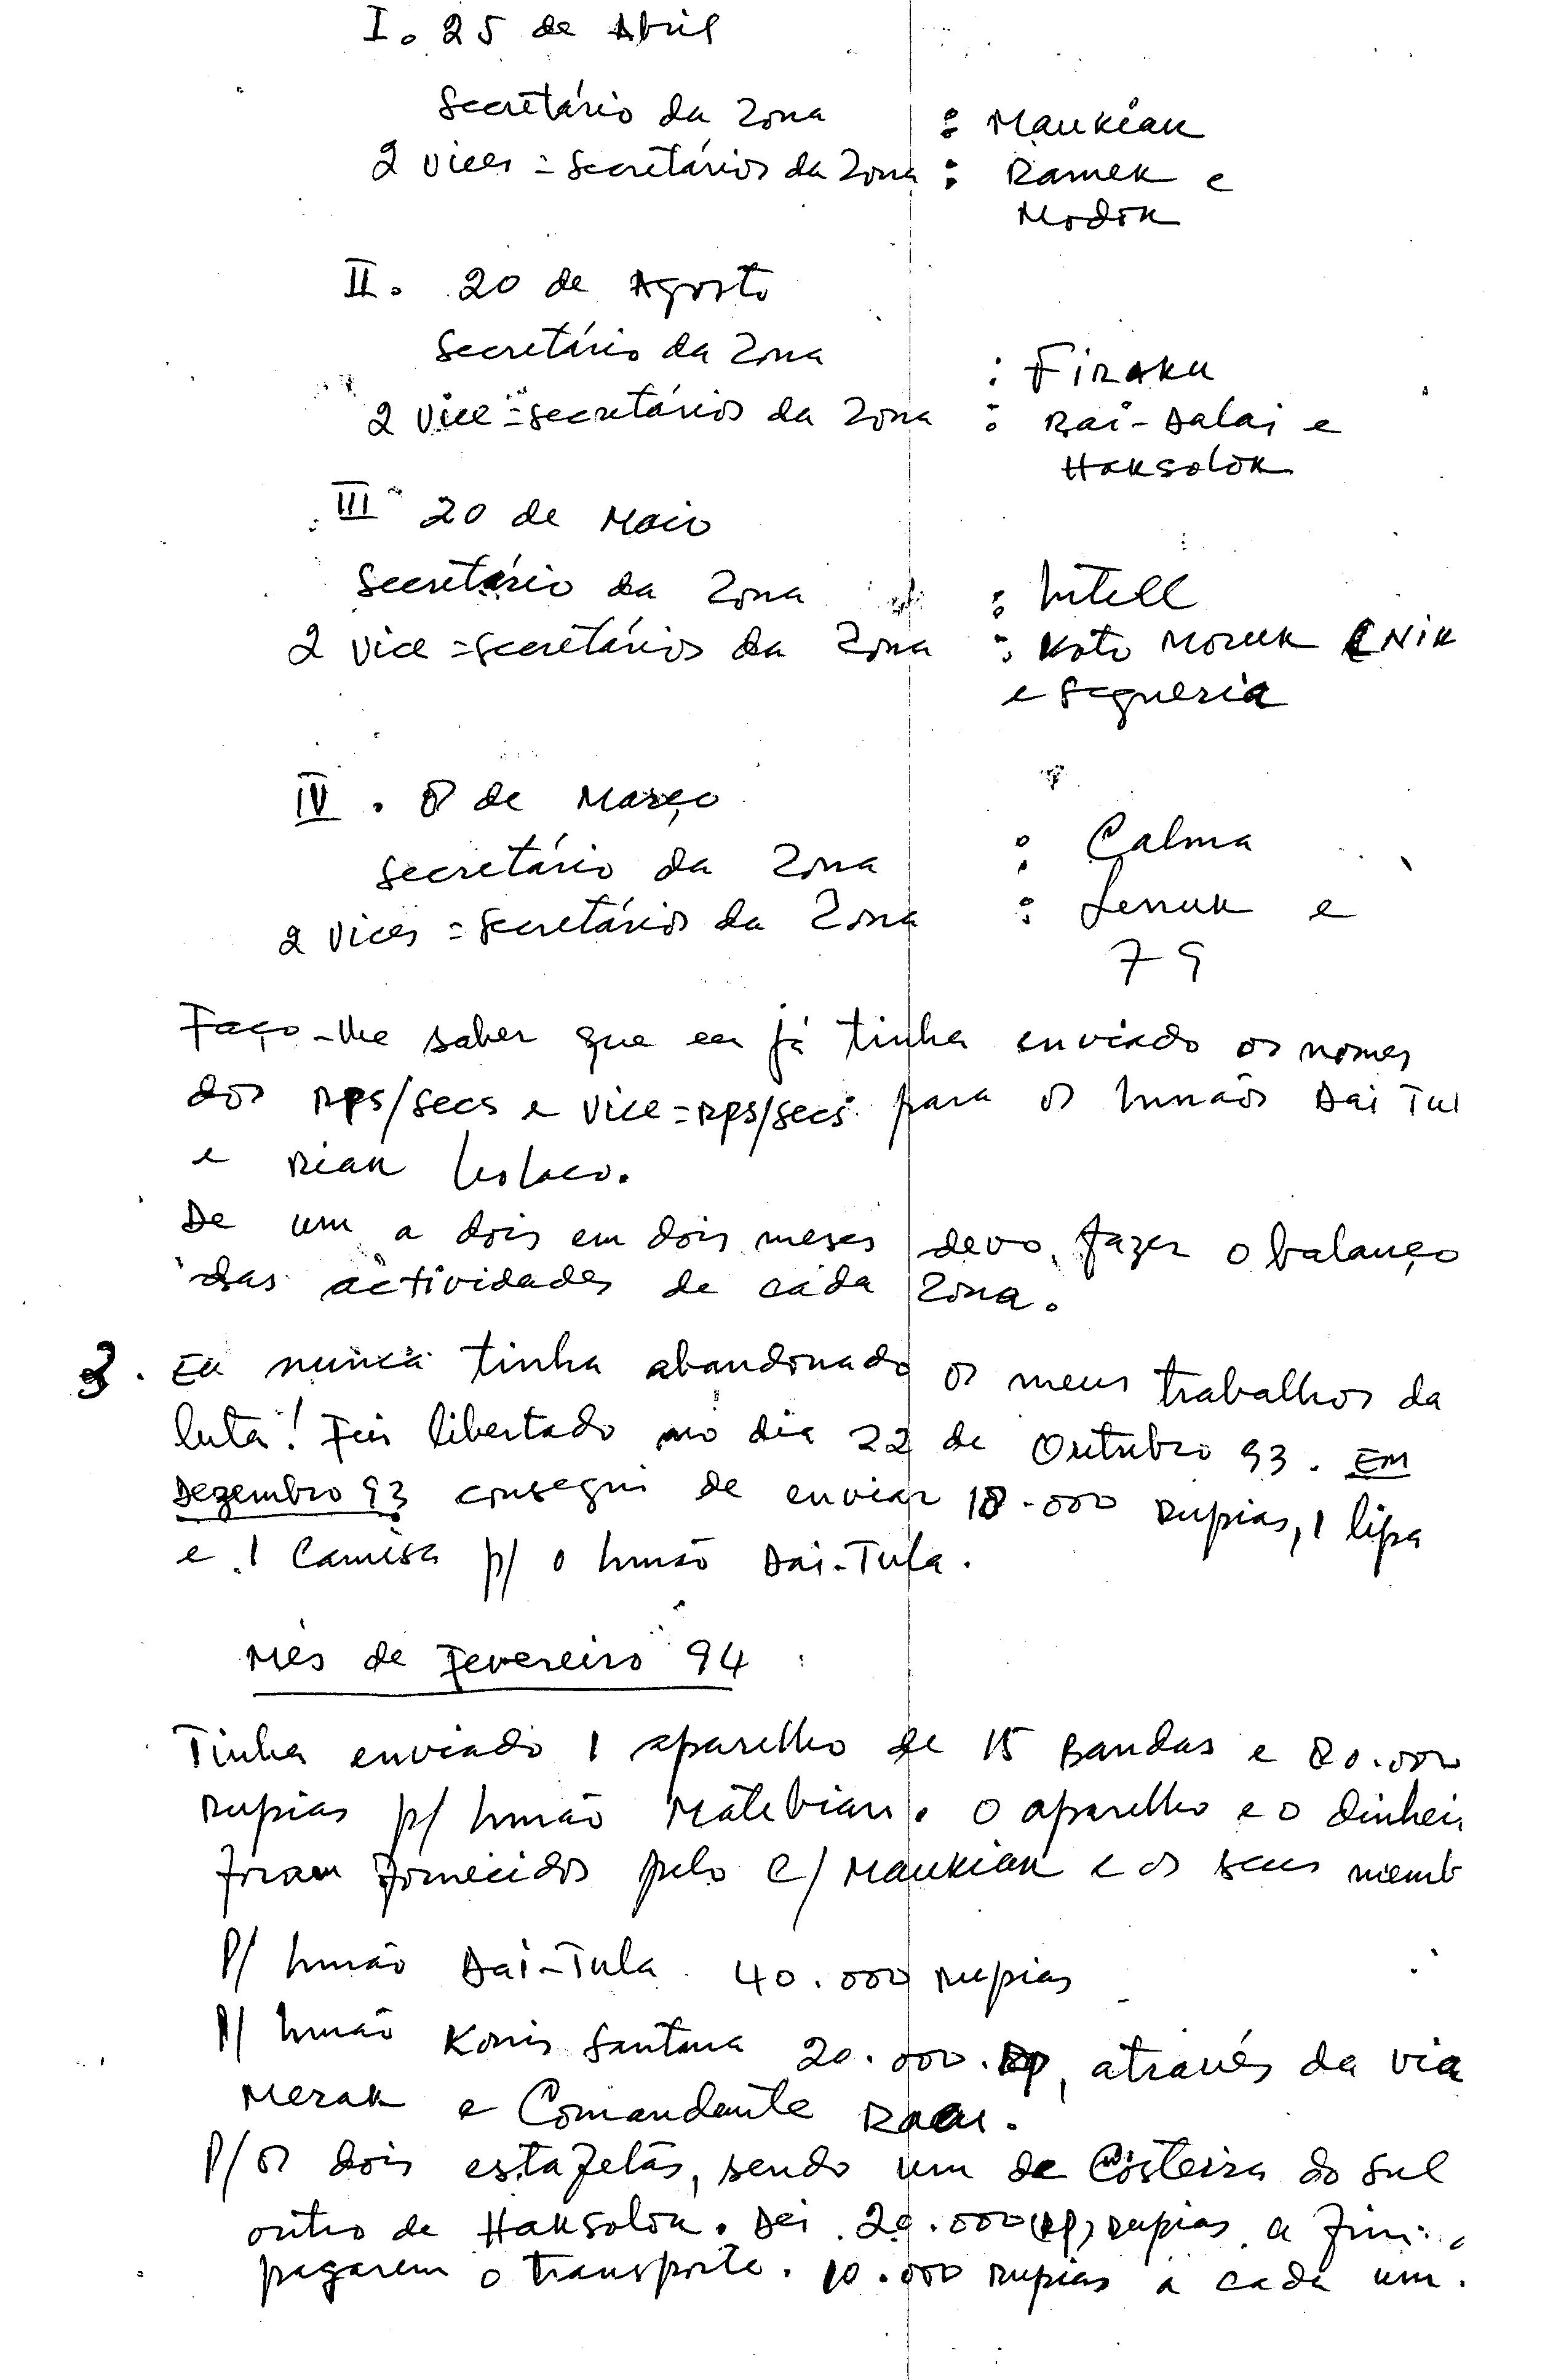 I. 25 de Abril
Secretário da Zona : Maukiak
2 vices = secretários da Zona : Ramek e
Modok
II. 20 de Agosto
Secretário da Zona : Firaku
2 vice = secretários da Zona : Rai-Dalai e
Haksolok
III 20 de Maio
Secretário da Zona : Intell
2 vice = secretários da Zona : Koto Moruk (NIK
e Sequeria
IV. 8 de Março
Secretário da Zona : Calma
2 vices = secretários da Zona : Lenuk e
79
Faço-lhe saber que eu já tinha enviado os nomes
dos Rps/secs e vice=Rps/secs para os Irmãos Dai Tul
e Riak
De um a dois em dois meses devo fazer o balanço
das actividades de cada Zona.
3. Eu nunca tinha abandonado os meus trabalhos da
luta! Fui libertado no dia 22 de Outubro 93. Em
Dezembro 93 consegui de enviar 18.000 rupias, 1 lipa
e 1 Camisa p/ o Irmão Dai-Tula.
Mês de Fevereiro 94
Tinha enviado 1 aparelho de 15 Bandas e 80.000
Rupias p/ Irmão Matebian. O aparelho e o dinhei
foram fornecidos pelo C/ Maukiak e os seus memb
P/ Irmão Dai-Tula 40.000 rupias
P/ Irmão Konis Santana 20.000.Rp, através da via
Merak e Comandante
P/ os dois estafetas, sendo um de Costeira do Sul
outro de Haksolok. Dei 20.000 (Rp) rupias a fim
pagarem o transporte. 10.000 rupias a cada um.